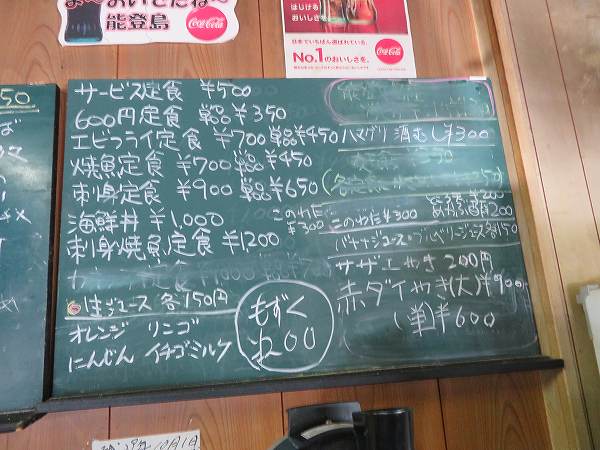 よ〜おいでたね〜
能登島
Coca-Cola
はじける
おいしさを。
日本でいちばん選ばれている。
No.1のおいしさ。
Coca-Cola
50
サービス定食 ¥500
600円定食 単品¥350
エビフライ定食 ¥700 単品¥450
焼魚定食 ¥700 単品¥450
刺身定食 ¥900 単品¥650
海鮮丼 ¥1,000
刺身焼魚定食 ¥1200
生ジュース 各150円
オレンジ リンゴ
にんじん イチゴミルク
もずく
¥200
ハマグリ 酒むし ¥300
このわた
¥300
このわた ¥300
¥200
200
バナナジュース・ブルーベリージュース各150
サザエやき 200円
赤ダイやき(大)¥900
(単)¥600
10月1日